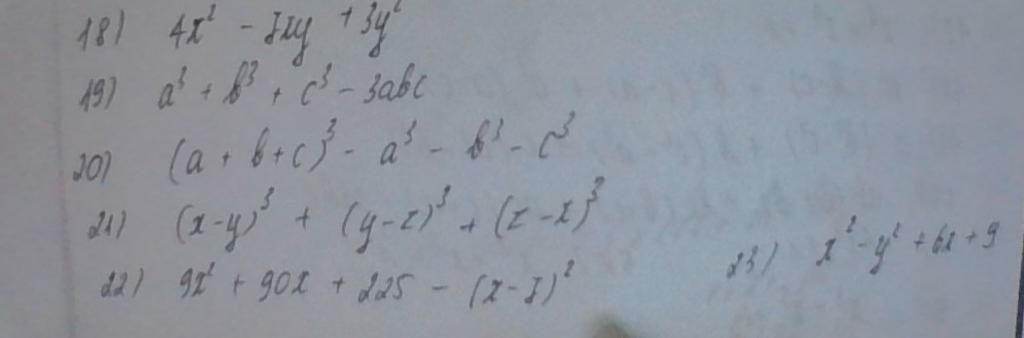 18) 4x² - 7xy + 3y²
19) a³ + b³ + c³ - 3abc
20) (a + b + c)³ - a³ - b³ - c³
21) (x-y)³ + (y-z)³ + (z-x)³
22) 9x² + 90x + 225 - (x-7)²
23) x² - y² + 6x + 9